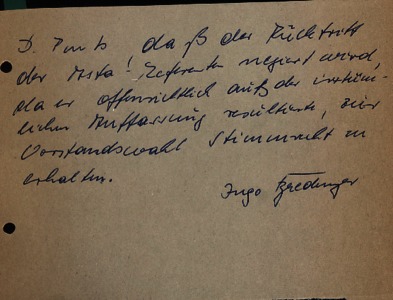 daß der Rücktritt
der Asta! Referenten negiert wird,
da er offensichtlich aus der irrtüm-
lichen Auffassung resultierte, zur
Vorstandswahl Stimmrecht zu
erhalten.
Ingo